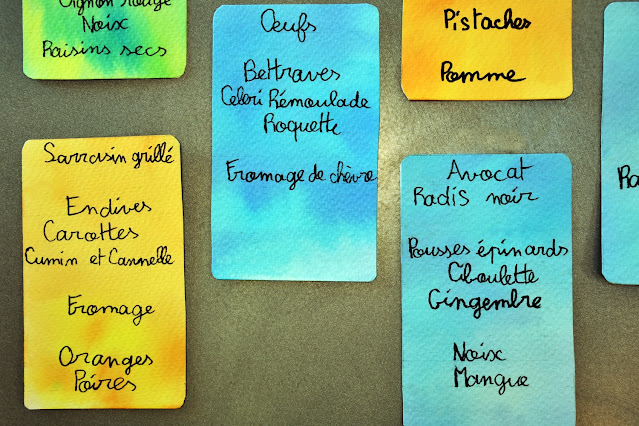 Oignon rouge
Noix
Raisins secs
Sarrasin grillé
Endives
Carottes
Cumin et Cannelle
Fromage
Oranges
Poires
Œufs
Bettraves
Celeri Rémoulade
Roquette
Fromage de chèvre
Pistaches
Pomme
Avocat
Radis noir
Pousses épinards
Ciboulette
Gingembre
Noix
Mangue
Ra